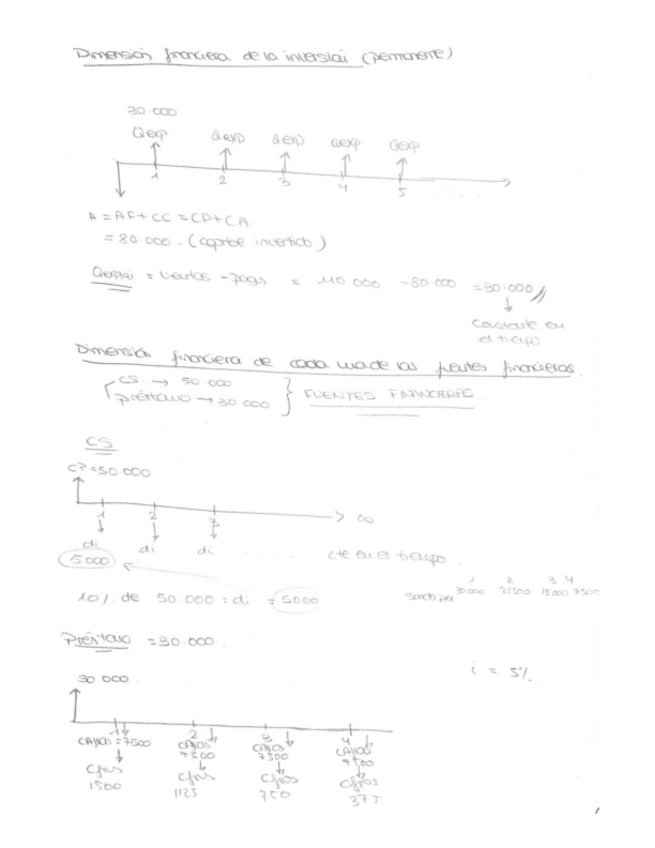 Dimensión financiera de la inversión (permanente)
30.000
Qexp Qexp Qexp Qexp Qexp
1 2 3 4 5 ....
A = AF + CC = CP + CA
= 80.000. (coste invertido)
Qexplai = Ventas - pagos = 110 000 - 80.000 = 30.000 //
Constante en
el tiempo
Dimensión financiera de cada una de las fuentes financieras.
CS. → 50 000
Préstamo → 30 000 } FUENTES FINANCIERAS
CS
C? = 50.000
1 2 3 → ∞
di di di ..... cte en el tiempo.
5000
10% de 50 000 = di = 5000
1 2 3 4
30000 22500 15000 7500
Préstamo = 30.000.
i = 5%.
30 000.
1 2 3 4
CAJ(0)s = 7500 7500 7500 7500
Cfins Cfins Cfins Cfins
1500 1125 750 375